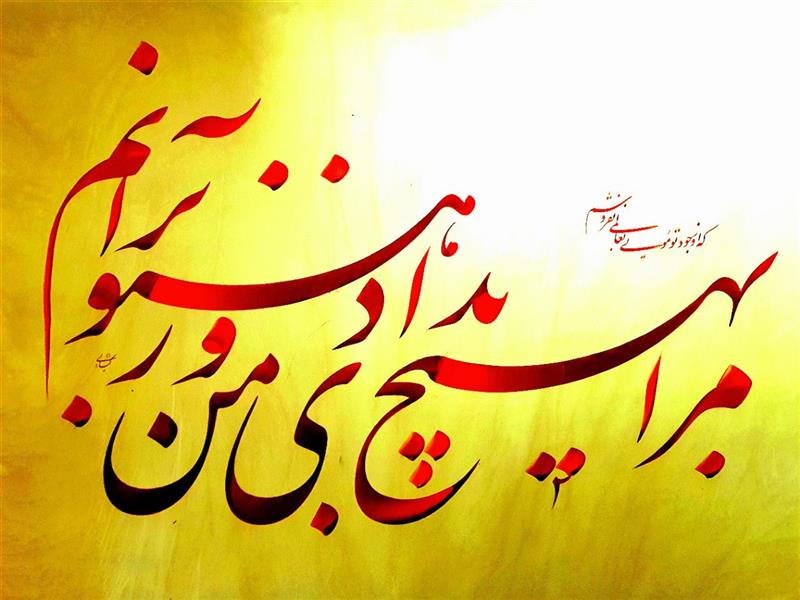 مرا بهیچ بدادی و من هنوز بر آنم
که از وجود تو مویی بعالمی نفروشم